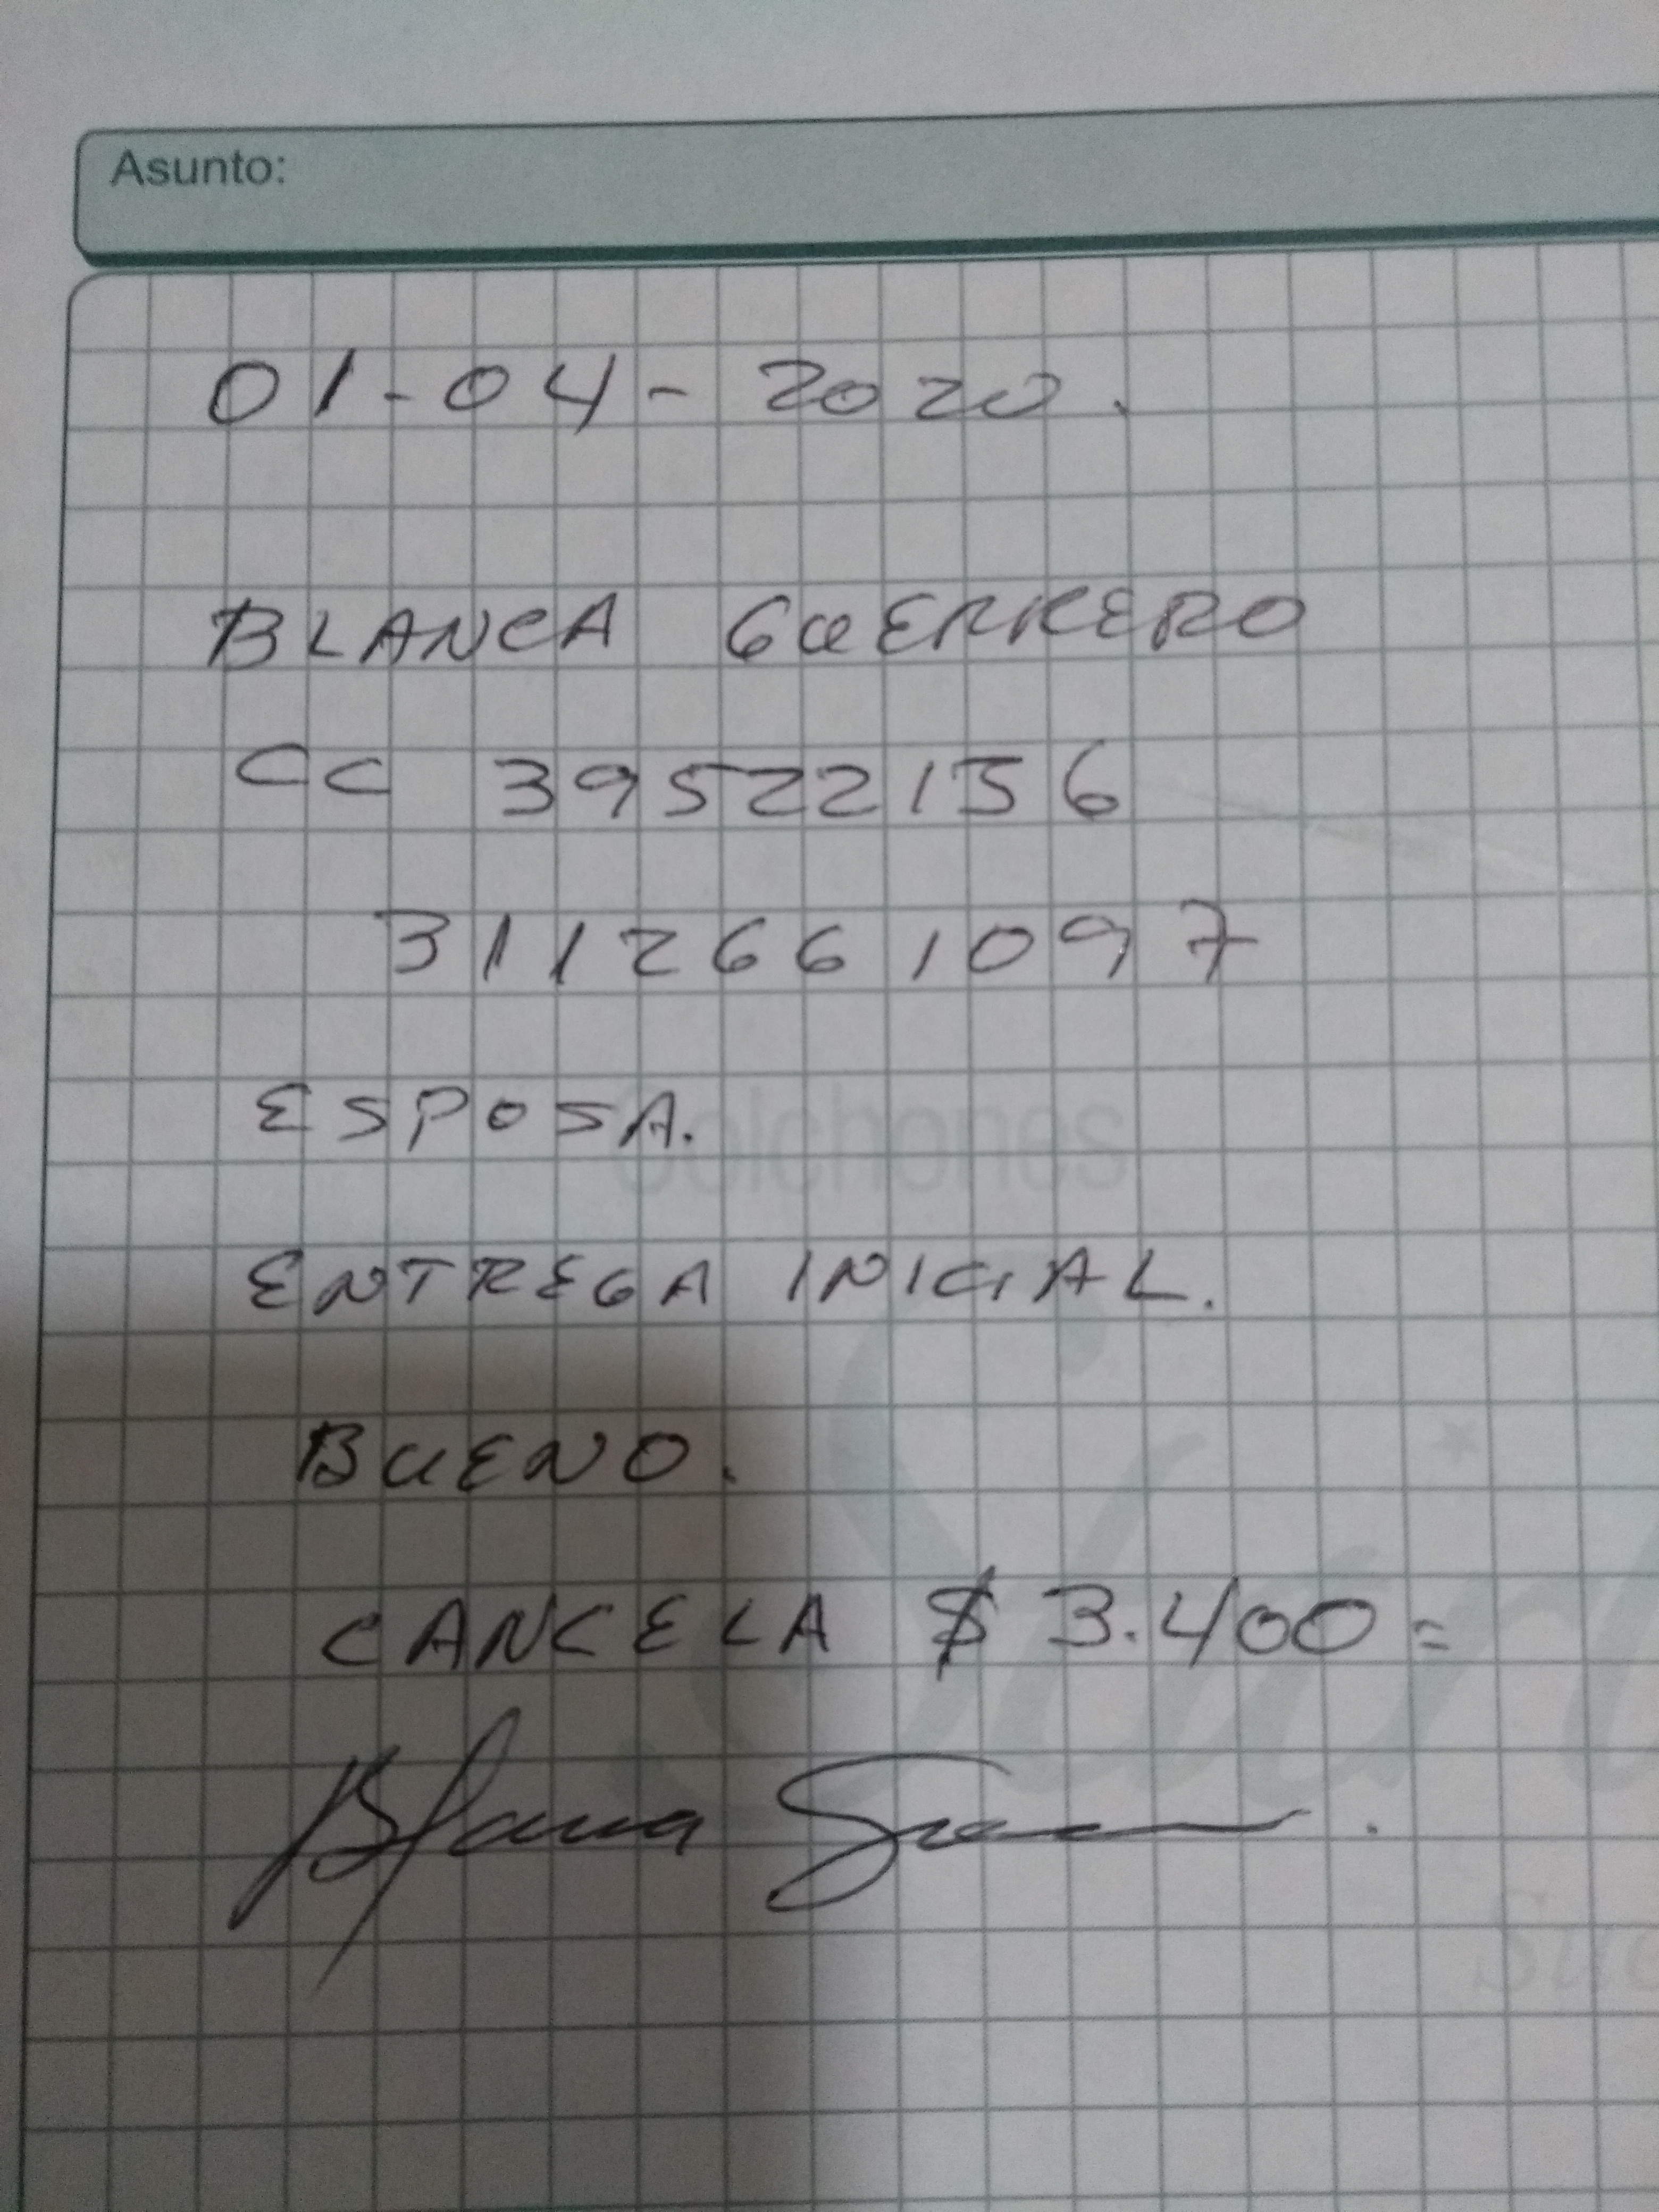 Asunto:
01-04-2020.
BLANCA GUERRERO
CC 39522156
3112661097
ESPOSA.
Colchones
ENTREGA INICIAL.
BUENO.
CANCELA $ 3.400=
Blanca